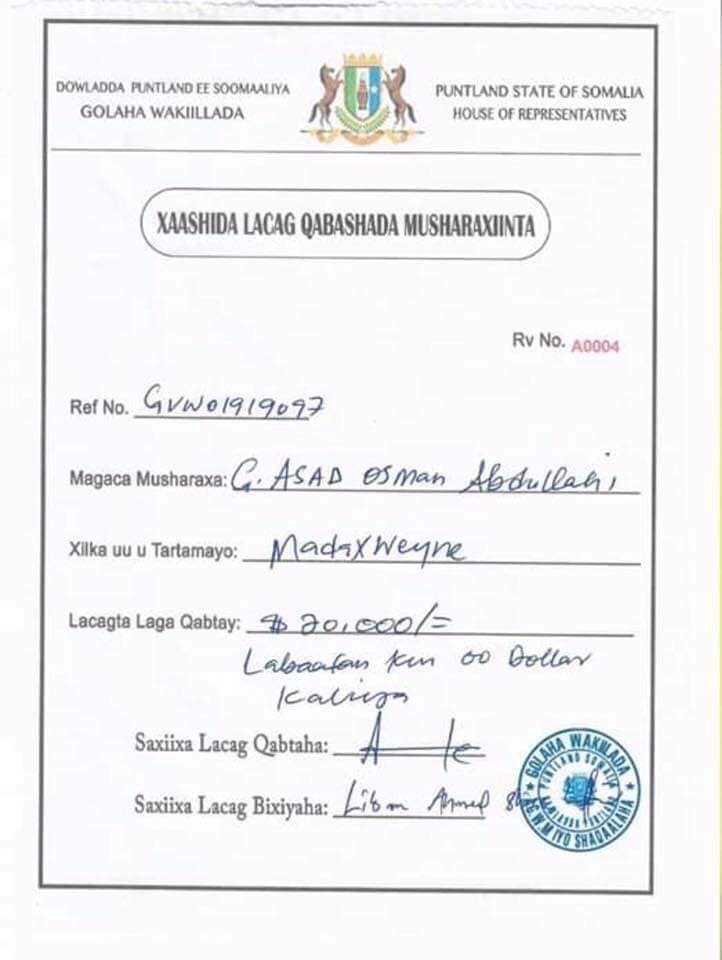 DOWLADDA PUNTLAND EE SOOMAALIYA
GOLAHA WAKIILLADA
PUNTLAND STATE OF SOMALIA
HOUSE OF REPRESENTATIVES
XAASHIDA LACAG QABASHADA MUSHARAXIINTA
Rv No. A0004
Ref No. GVW01919097
Magaca Musharaxa: G. ASAD OSMAN Abdullahi
Xilka uu u Tartamayo: MadaxWeyne
Lacagta Laga Qabtay: $ 20,000/=
Labaatan kun oo Dollar
Kaliya
Saxiixa Lacag Qabtaha:
Saxiixa Lacag Bixiyaha: Liban Ahmed
GOLAHA WAKIILADA
PUNTLAND
IYO SHAQAALAHA